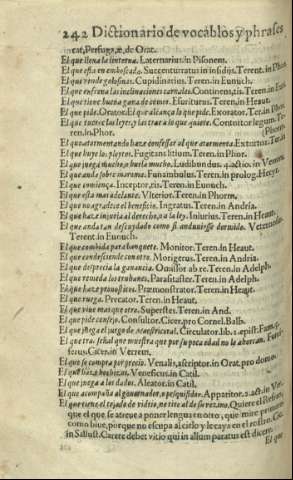 242 Dictionario de vocablos y phrases
cat, Perfuga, æ, de Orat.
El que lleua la linterna. Laternarius, in Pisonem.
El que esta en emboscada. Succenturratus in insidijs. Terent. in Phor.
El que vende golosinas. Cupidinarius. Teren. in Eunuch.
El que enfrena las inclinaciones carnales. Continens, tis. Teren. in Eun.
El que tiene buena gana de comer. Esuriturus. Teren. in Heaut.
El que pide. Orator. El que alcança lo que pide. Exorator. Teren. in
El que tuerce las leyes, y las trae a lo que quiere. Contortor legum. Teren. in Phor.
El que atormentando haze confessar al que atormenta. Extortor. Teren. in
El que huye los pleytos. Fugitans litium. Teren. in Phor.
El que juega mucho, o burla mucho. Ludibundus. 5. actio. in Verrem.
El que anda sobre maroma. Funambulus. Teren. in prolog. Hecyr.
El que comiença. Inceptor, ris. Teren. in Eunuch.
El que esta mas adelante. Vlterior. Teren. in Phorm.
El que no agradece el beneficio. Ingratus. Teren. in Andria.
El que haze injuria al derecho, o a la ley. Iniurius. Teren. in Heaut.
El que anda tan descuydado como si anduuiesse dormido.
Terent. in Eunuch.
El que combida para banquete. Monitor. Teren. in Heaut.
El que condesciende con otro. Morigerus. Teren. in Andria.
El que desprecia la ganancia. Omissor ab re. Teren. in Adelph.
El que remeda los truhanes. Parasitaster. Teren. in Adelph.
El que haze pronosticos. Præmonstrator. Teren. in Heaut.
El que ruega. Precator. Teren. in Heaut.
El que viue mas que otro. Superstes. Teren. in And.
El que pide consejo. Consultor. Cicer. pro Cornel. Balb.
El que juega el juego de
Circulator. lib. 2. epist. Fam.
El que tra
señal que muestra que por su poca edad no le
ferus. Cicer. in Verrem.
El que se compra por precio. Venalis, ascriptor. in Orat. pro domo.
El que haze hechizos. Veneficus. in Catil.
El que juega a los dados. Aleator. in Catil.
El que acompaña algouernador, o pesquisidor. Apparitor. 2. act. in Ver.
El que tiene el tejado de vidrio, no tire al de su vezino. Quiere dezir,
que el que se atreue a poner lengua en otro, que mire primero
como biue, porque no escupa al cielo y le caya en el rostro. Cic.
in Salust. Carere debet vitio qui in alium paratus est dicere.
El que